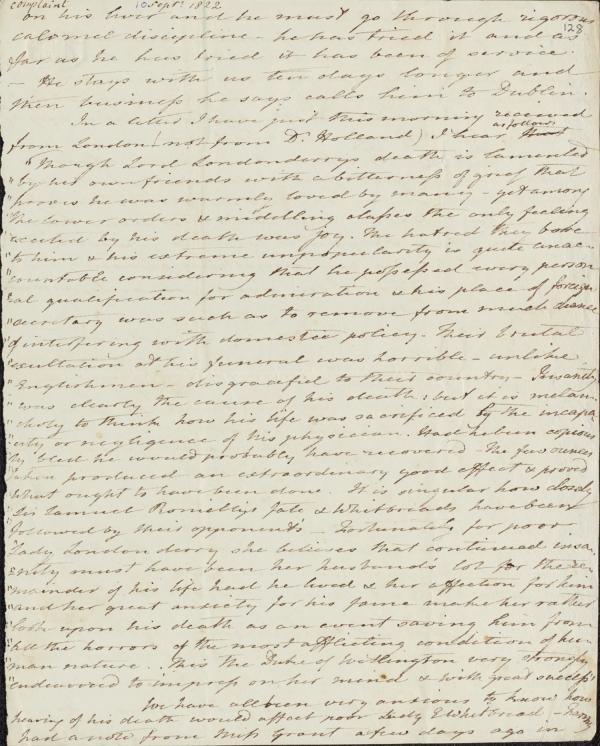 complaint 10 Septr. 1822
128
on his liver and he must go through rigorous
calomel discipline - he has tried it and as
far as he has tried it has been of service.
- He stays with us ten days longer and
then business he says calls him to Dublin.
In a letter I have just this morning received
from London (not from Dr. Holland) I hear as follows
"Though Lord Londonderrys death is lamented
"by his own friends with a bitterness of grief that
"proves he was warmly loved by many - yet among
"the lower orders & middling classes the only feeling
"excited by his death was joy. The hatred they bore
"to him & his extreme unpopularity is quite unac-
"countable considering that he possessed every person
"al qualification for admiration & his place of foreign
"secretary was such as to remove from much chance
"of interfering with domestic policy. Their brutal
"exultation at his funeral was horrible - unlike
"Englishmen - disgraceful to their country - Insanity
"was clearly the cause of his death: but it is melan
"choly to think how his life was sacrificed by the incapa
"city or negligence of his physician. Had he been copious
"ly bled he would probably have recovered - The few ounces
"taken produced an extraordinary good effect & proved
"what ought to have been done. It is singular how closely
"Sir Samuel Romillys fate & Whitbreads have been
"followed by their opponents - Fortunately for poor
"Lady London derry she believes that continued insa-
"nity must have been her husbands lot for the re
"mainder of his life had he lived & her affection for him
"and her great anxiety for his fame make her rather
"look upon his death as an event saving him from
"all the horrors of the most afflicting condition of hu-
"man nature. This the Duke of Wellington very strongly
"endeavored to impress on her mind & with great success"
We have all been very anxious to know how
hearing of his death would affect poor Lady E Whitbread -
had a note from Miss Grant a few days ago in